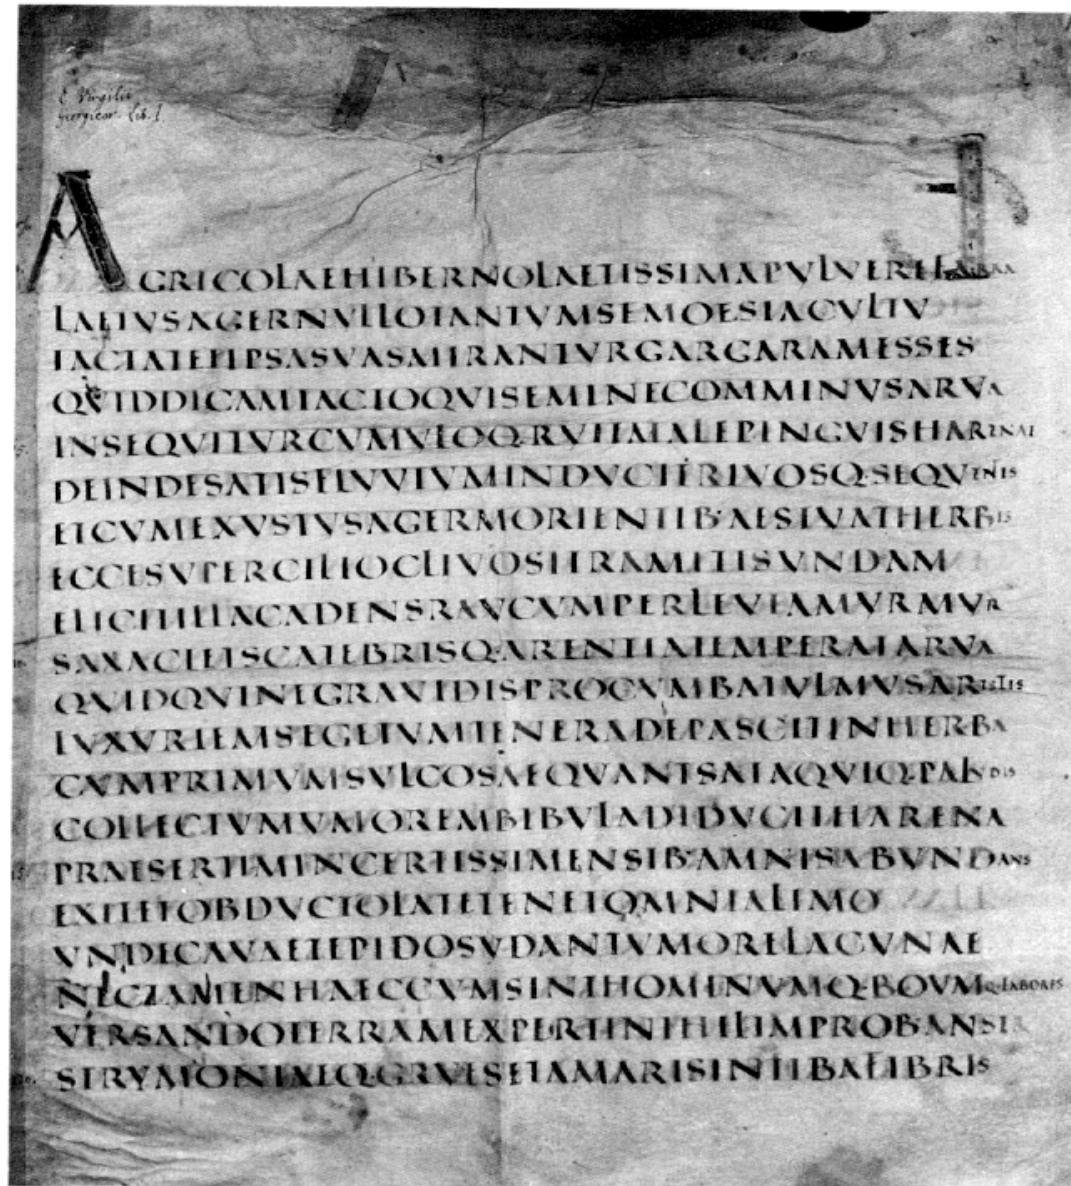 E Virgilii
Georgicor. Lib. I.
AGRICOLAEHIBERNOLAETISSIMAPVLVEREFARRA
LAETVSAGERNVLLOTANTVMSEMOESIACVLTV
IACTATETIPSASVASMIRANTVRGARGARAMESSES
QVIDDICAMIACTOQVISEMINECOMMINVSARVA
INSEQVITVRCVMVLOQ·RVITMALEPINGVISHARENAE
DEINDESATISFLVVIVMINDVCITRIVOSQ·SEQVENTIS
ETCVMEXVSTVSAGERMORIENTIB·AESTVATHERBIS
ECCESVPERCILIOCLIVOSITRAMITISVNDAM
ELICITILLACADENSRAVCVMPERLEVIAMVRMVR
SAXACIETISCATEBRISQ·ARENTIATEMPERATARVA
QVIDQVINEGRAVIDISPROCVMBATVLMVSARISTIS
LVXVRIEMSEGETVMTENERADEPASCITINHERBA
CVMPRIMVMSVLCOSAEQVANTSATAQVIQ·PALVDIS
COLLECTVMVMOREMBIBVLADIDVCITHARENA
PRAESERTIMINCERTISSIMENSIB·AMNISABVNDANS
EXITETOBDVCTOLATETENETOMNIALIMO
VNDECAVAETEPIDOSVDANTVMORELACVNAE
NECTAMENHAECCVMSINTHOMINVMQ·BOVMQ·LABORES
VERSANDOTERRAMEXPERTINIHILIMPROBANSER
STRYMONIAEQ·GRVESETAMARISINTIBAFIBRIS